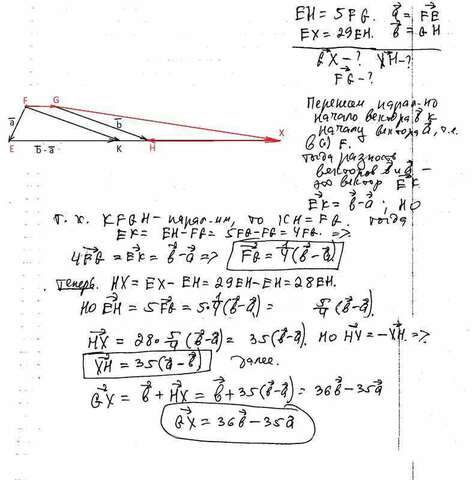 EH = 5FG. a⃗ = FE
EX = 29EH. b⃗ = GH
GX - ? XH - ?
FG - ?
F G
a b
X
E b - a K H
Перенесем парал-но
начало вектора b⃗ к
началу вектора a⃗, т.е.
в (·) F.
тогда разность
векторов b и a⃗ -
это вектор EK
EK = b⃗ - a⃗; но
т. к. KFGH - парал-мм, то KH = FG. тогда
EK = EH - FG = 5FG - FG = 4FG. =>
4FG = EK = b⃗ - a⃗ => FG = 1/4(b⃗ - a⃗)
теперь. HX = EX - EH = 29EH - EH = 28EH.
но EH = 5FG = 5·1/4(b⃗ - a⃗) = 5/4(b⃗ - a⃗).
HX = 28·5/4(b⃗ - a⃗) = 35(b⃗ - a⃗). но HX = -XH =>
XH = 35(a⃗ - b⃗) далее.
GX = b⃗ + HX = b⃗ + 35(b⃗ - a⃗) = 36b⃗ - 35a⃗
GX = 36b⃗ - 35a⃗